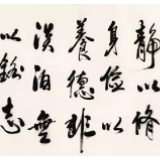 靜以修
身儉以
養德非
淡泊無
以銘志